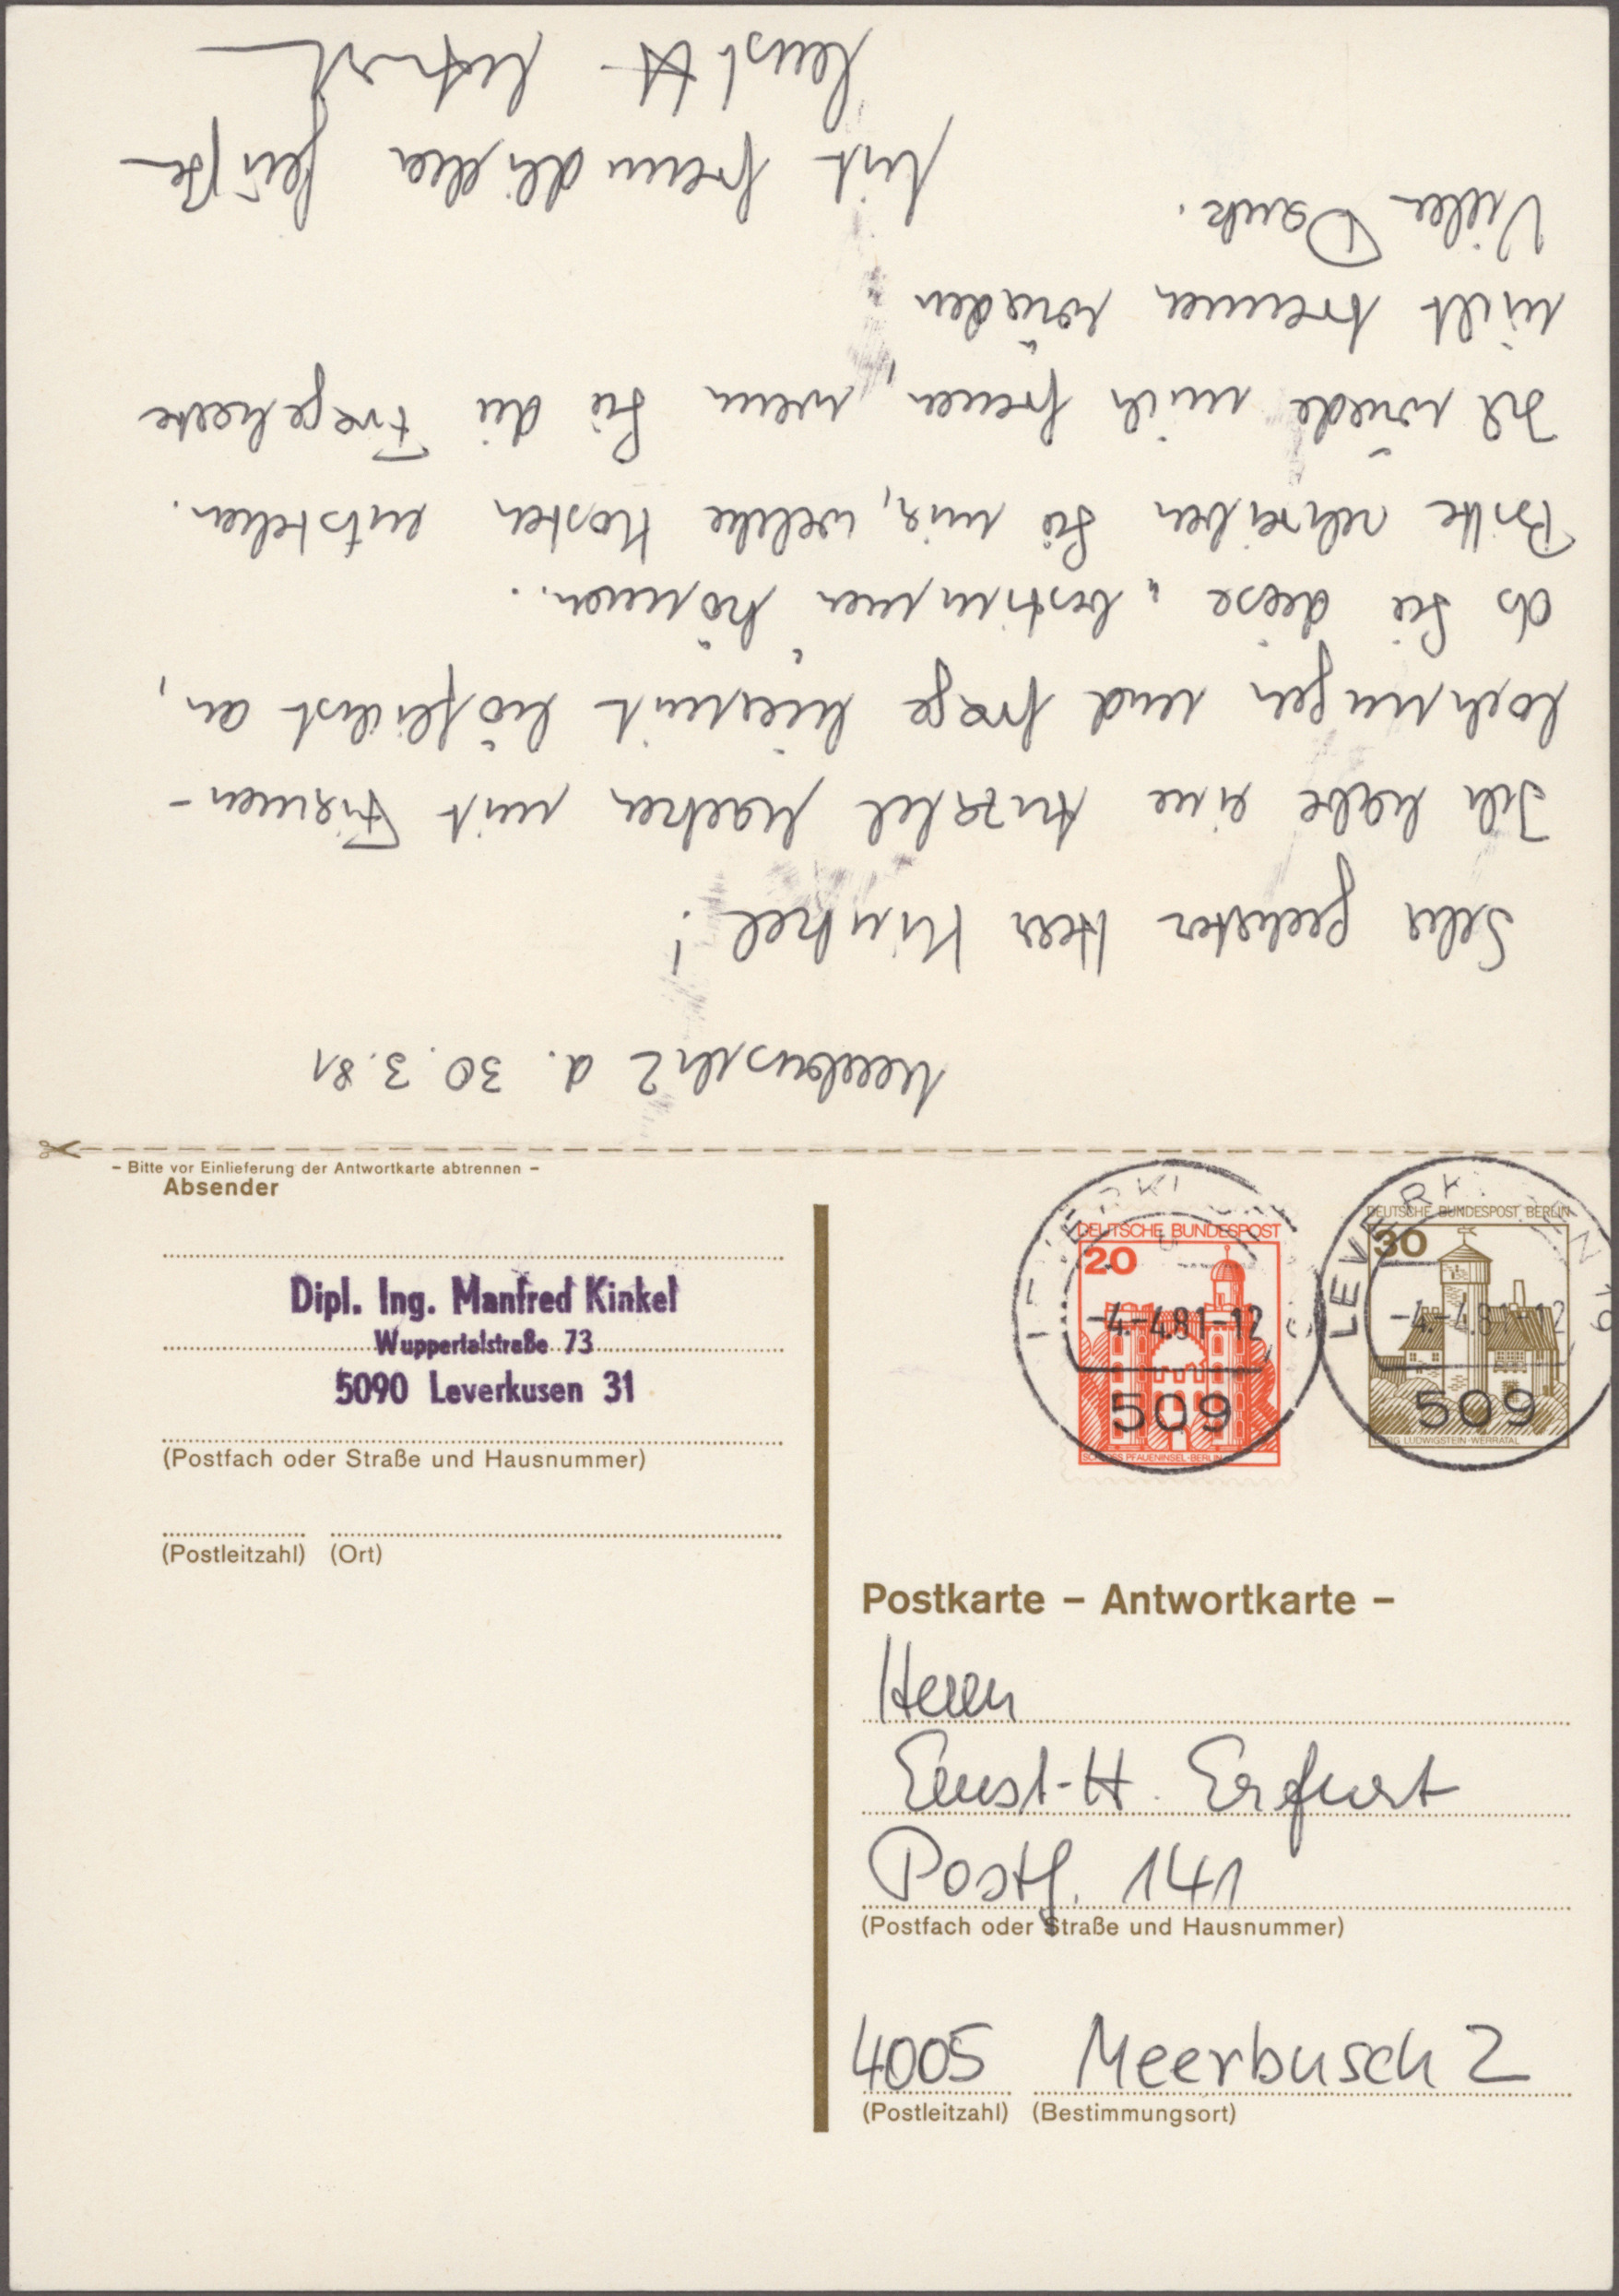 Meerbusch 2 d. 30.3.81
Sehr geehrter Herr Kinkel!
Ich habe eine Anzahl Marken mit Firmen-
lochungen und frage hiermit höflichst an,
ob Sie diese "bestimmen" können.
Bitte schreiben Sie mir, welche Kosten entstehen.
Ich würde mich freuen, wenn Sie die Fragekarte
nicht trennen würden
Vielen Dank.
Mit freundlichen Grüßen
Ernst H. Erfurt
- Bitte vor Einlieferung der Antwortkarte abtrennen -
Absender
Dipl. Ing. Manfred Kinkel
Wuppertalstraße 73
5090 Leverkusen 31
(Postfach oder Straße und Hausnummer)
(Postleitzahl) (Ort)
DEUTSCHE BUNDESPOST
20
SCHLOSS PFAUENINSEL-BERLIN
DEUTSCHE BUNDESPOST BERLIN
30
BURG LUDWIGSTEIN-WERRATAL
-4.-4.81-12
509
LEVERKUSEN
-4.-4.81-12
509
Postkarte – Antwortkarte –
Herrn
Ernst-H. Erfurt
Postf. 141
(Postfach oder Straße und Hausnummer)
4005 Meerbusch 2
(Postleitzahl) (Bestimmungsort)